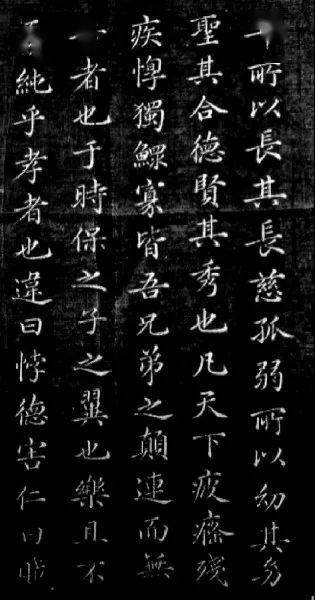 所以長其長慈孤弱所以幼其幼
聖其合德賢其秀也凡天下疲癃殘
疾惸獨鰥寡皆吾兄弟之顛連而無
者也于時保之子之翼也樂且不
純乎孝者也違曰悖德害仁曰賊